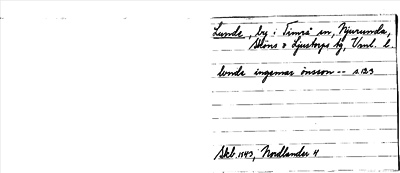 Lunde, by i Timrå sn, Njurunda,
Sköns o Ljustorps tg, Vml. l.
lunda ingemar önsson -- s.123
Skb. 1543, Nordlander 4